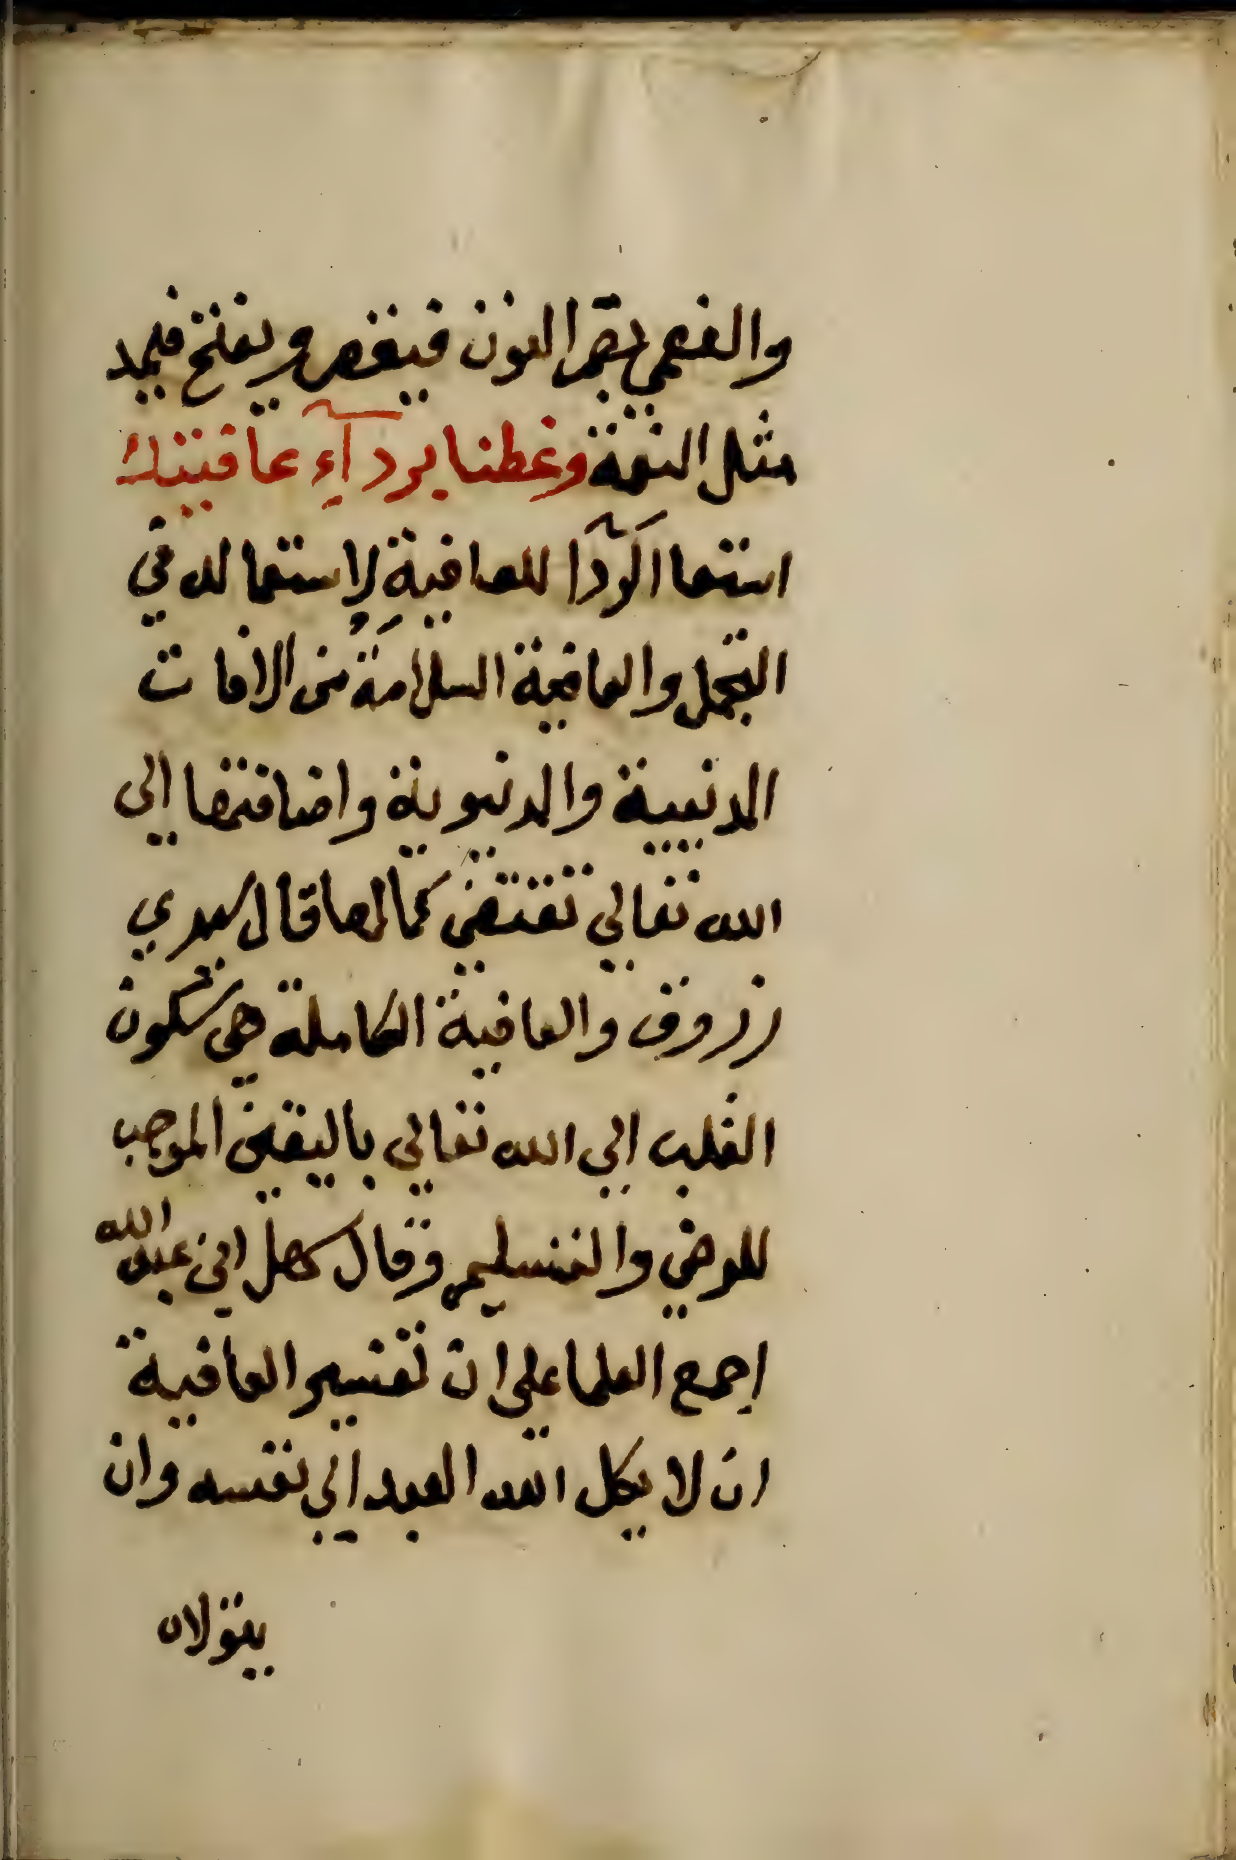 والنعمي بضم النون فيقصر ويفتح فيمد
مثل النعمة وغطنا بردآء عافيتك
استعار الردا للعافية لاستعماله في
التجمل والعافية السلامة من الافات
الدينية والدنيوية واضافتها الي
الله تعالي تقتضي كمالها قال سيدي
زروق والعافية الكاملة هي سكون
القلب الي الله تعالي باليقين الموجب
للرضي والتسليم وقال سهل ابن عبد الله
اجمع العلما علي ان تفسير العافية
ان لا يكل الله العبد الي نفسه وان
يتولاه